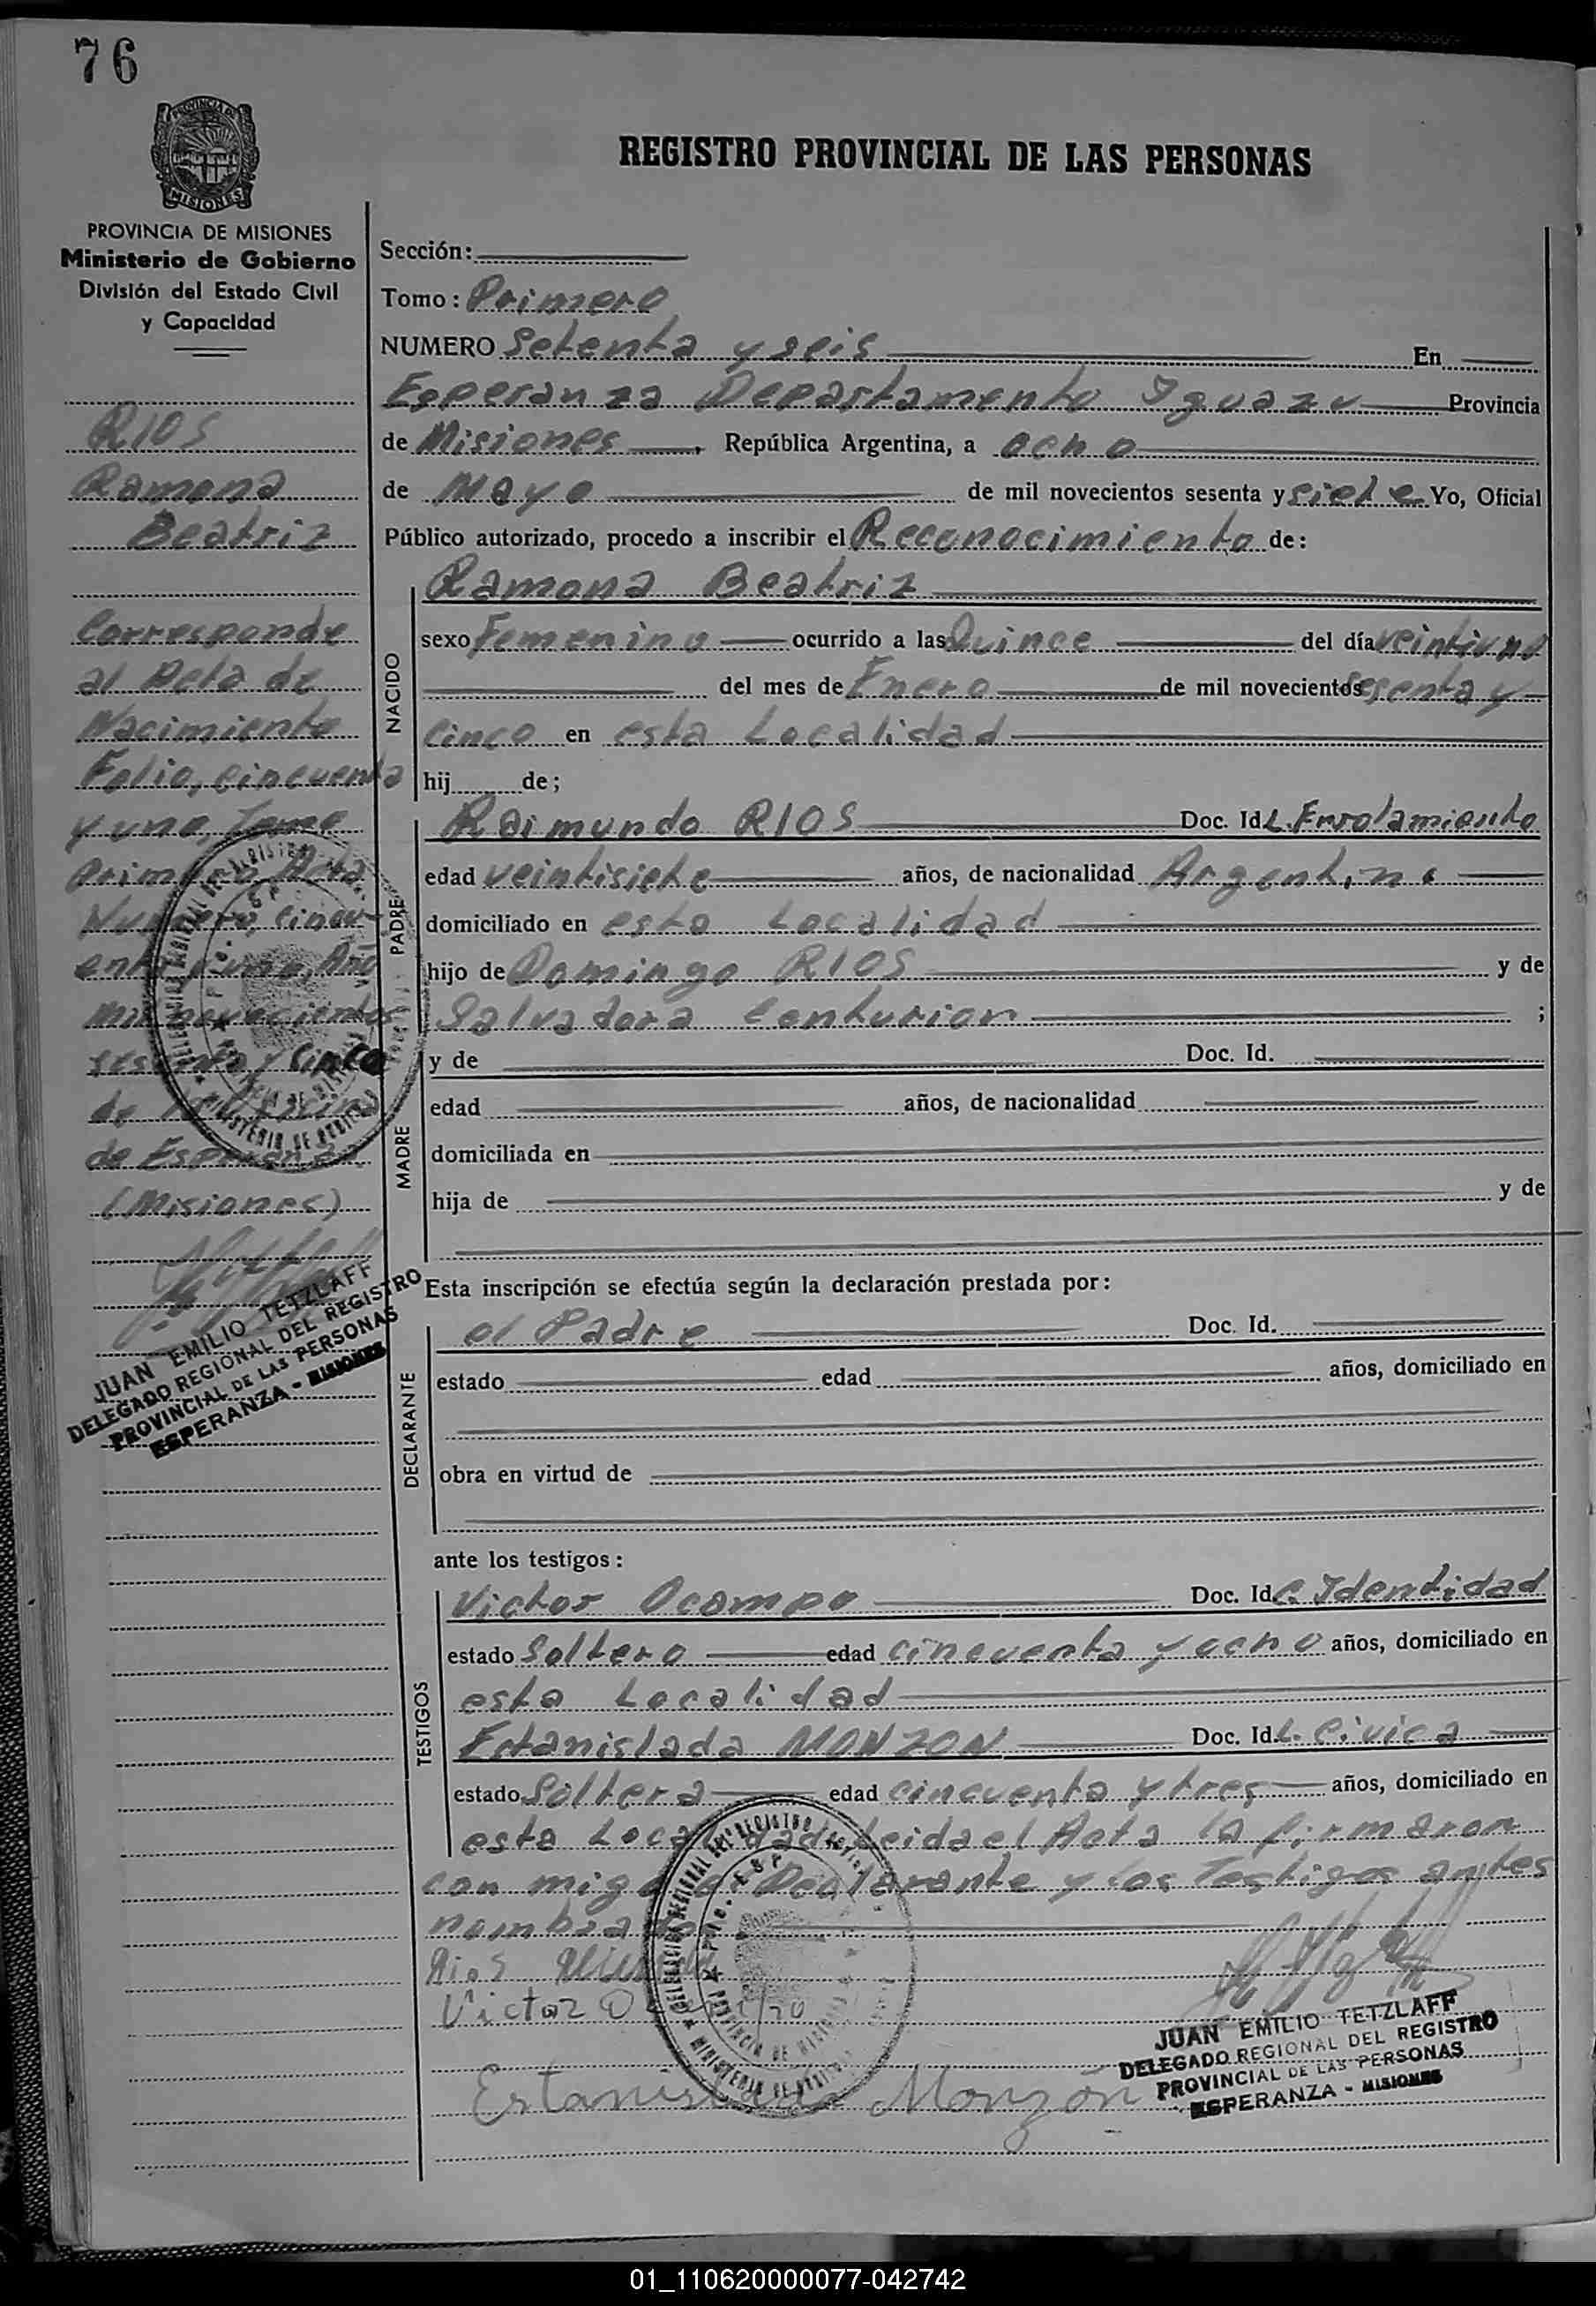 76
PROVINCIA DE
MISIONES
REGISTRO PROVINCIAL DE LAS PERSONAS
PROVINCIA DE MISIONES
Ministerio de Gobierno
División del Estado Civil
y Capacidad
RIOS
Ramona
Beatriz
Corresponde
al Acta de
Nacimiento
Folio, cincuenta
y uno, Tomo
Primero, Acta
Numero, Cincu-
enta y uno, Año
Mil novecientos
sesenta y Cinco
de
de Esperanza.
(Misiones)
JUAN EMILIO TETZLAFF
DELEGADO REGIONAL DEL REGISTRO
PROVINCIAL DE LAS PERSONAS
ESPERANZA - MISIONES
Sección:
Tomo: Primero
NUMERO Setenta y seis En
Esperanza Departamento Iguazu Provincia
de Misiones, República Argentina, a ocho
de Mayo de mil novecientos sesenta y siete Yo, Oficial
Público autorizado, procedo a inscribir el Reconocimiento de:
NACIDO
Ramona Beatriz
sexo Femenino ocurrido a las Quince del día veintiuno
del mes de Enero de mil novecientos sesenta y
cinco en esta Localidad
hij de;
PADRE
Raimundo RIOS Doc. Id. L. Enrolamiento
edad veintisiete años, de nacionalidad Argentino
domiciliado en esta Localidad
hijo de Domingo RIOS y de
Salvadora Centurion ;
MADRE
y de Doc. Id.
edad años, de nacionalidad
domiciliada en
hija de y de
Esta inscripción se efectúa según la declaración prestada por:
DECLARANTE
el Padre Doc. Id.
estado edad años, domiciliado en
obra en virtud de
ante los testigos:
TESTIGOS
Victor Ocampo Doc. Id. C. Identidad
estado Soltero edad cincuenta y ocho años, domiciliado en
esta Localidad
Estanislada MONZON Doc. Id. L. Civica
estado Soltera edad cincuenta y tres años, domiciliado en
esta Localidad Leida el Acta la firmaron
con migo el Declarante y los Testigos antes
nombrados
Rios
Victor
Estanislada Monzón
JUAN EMILIO TETZLAFF
DELEGADO REGIONAL DEL REGISTRO
PROVINCIAL DE LAS PERSONAS
ESPERANZA - MISIONES
01_110620000077-042742